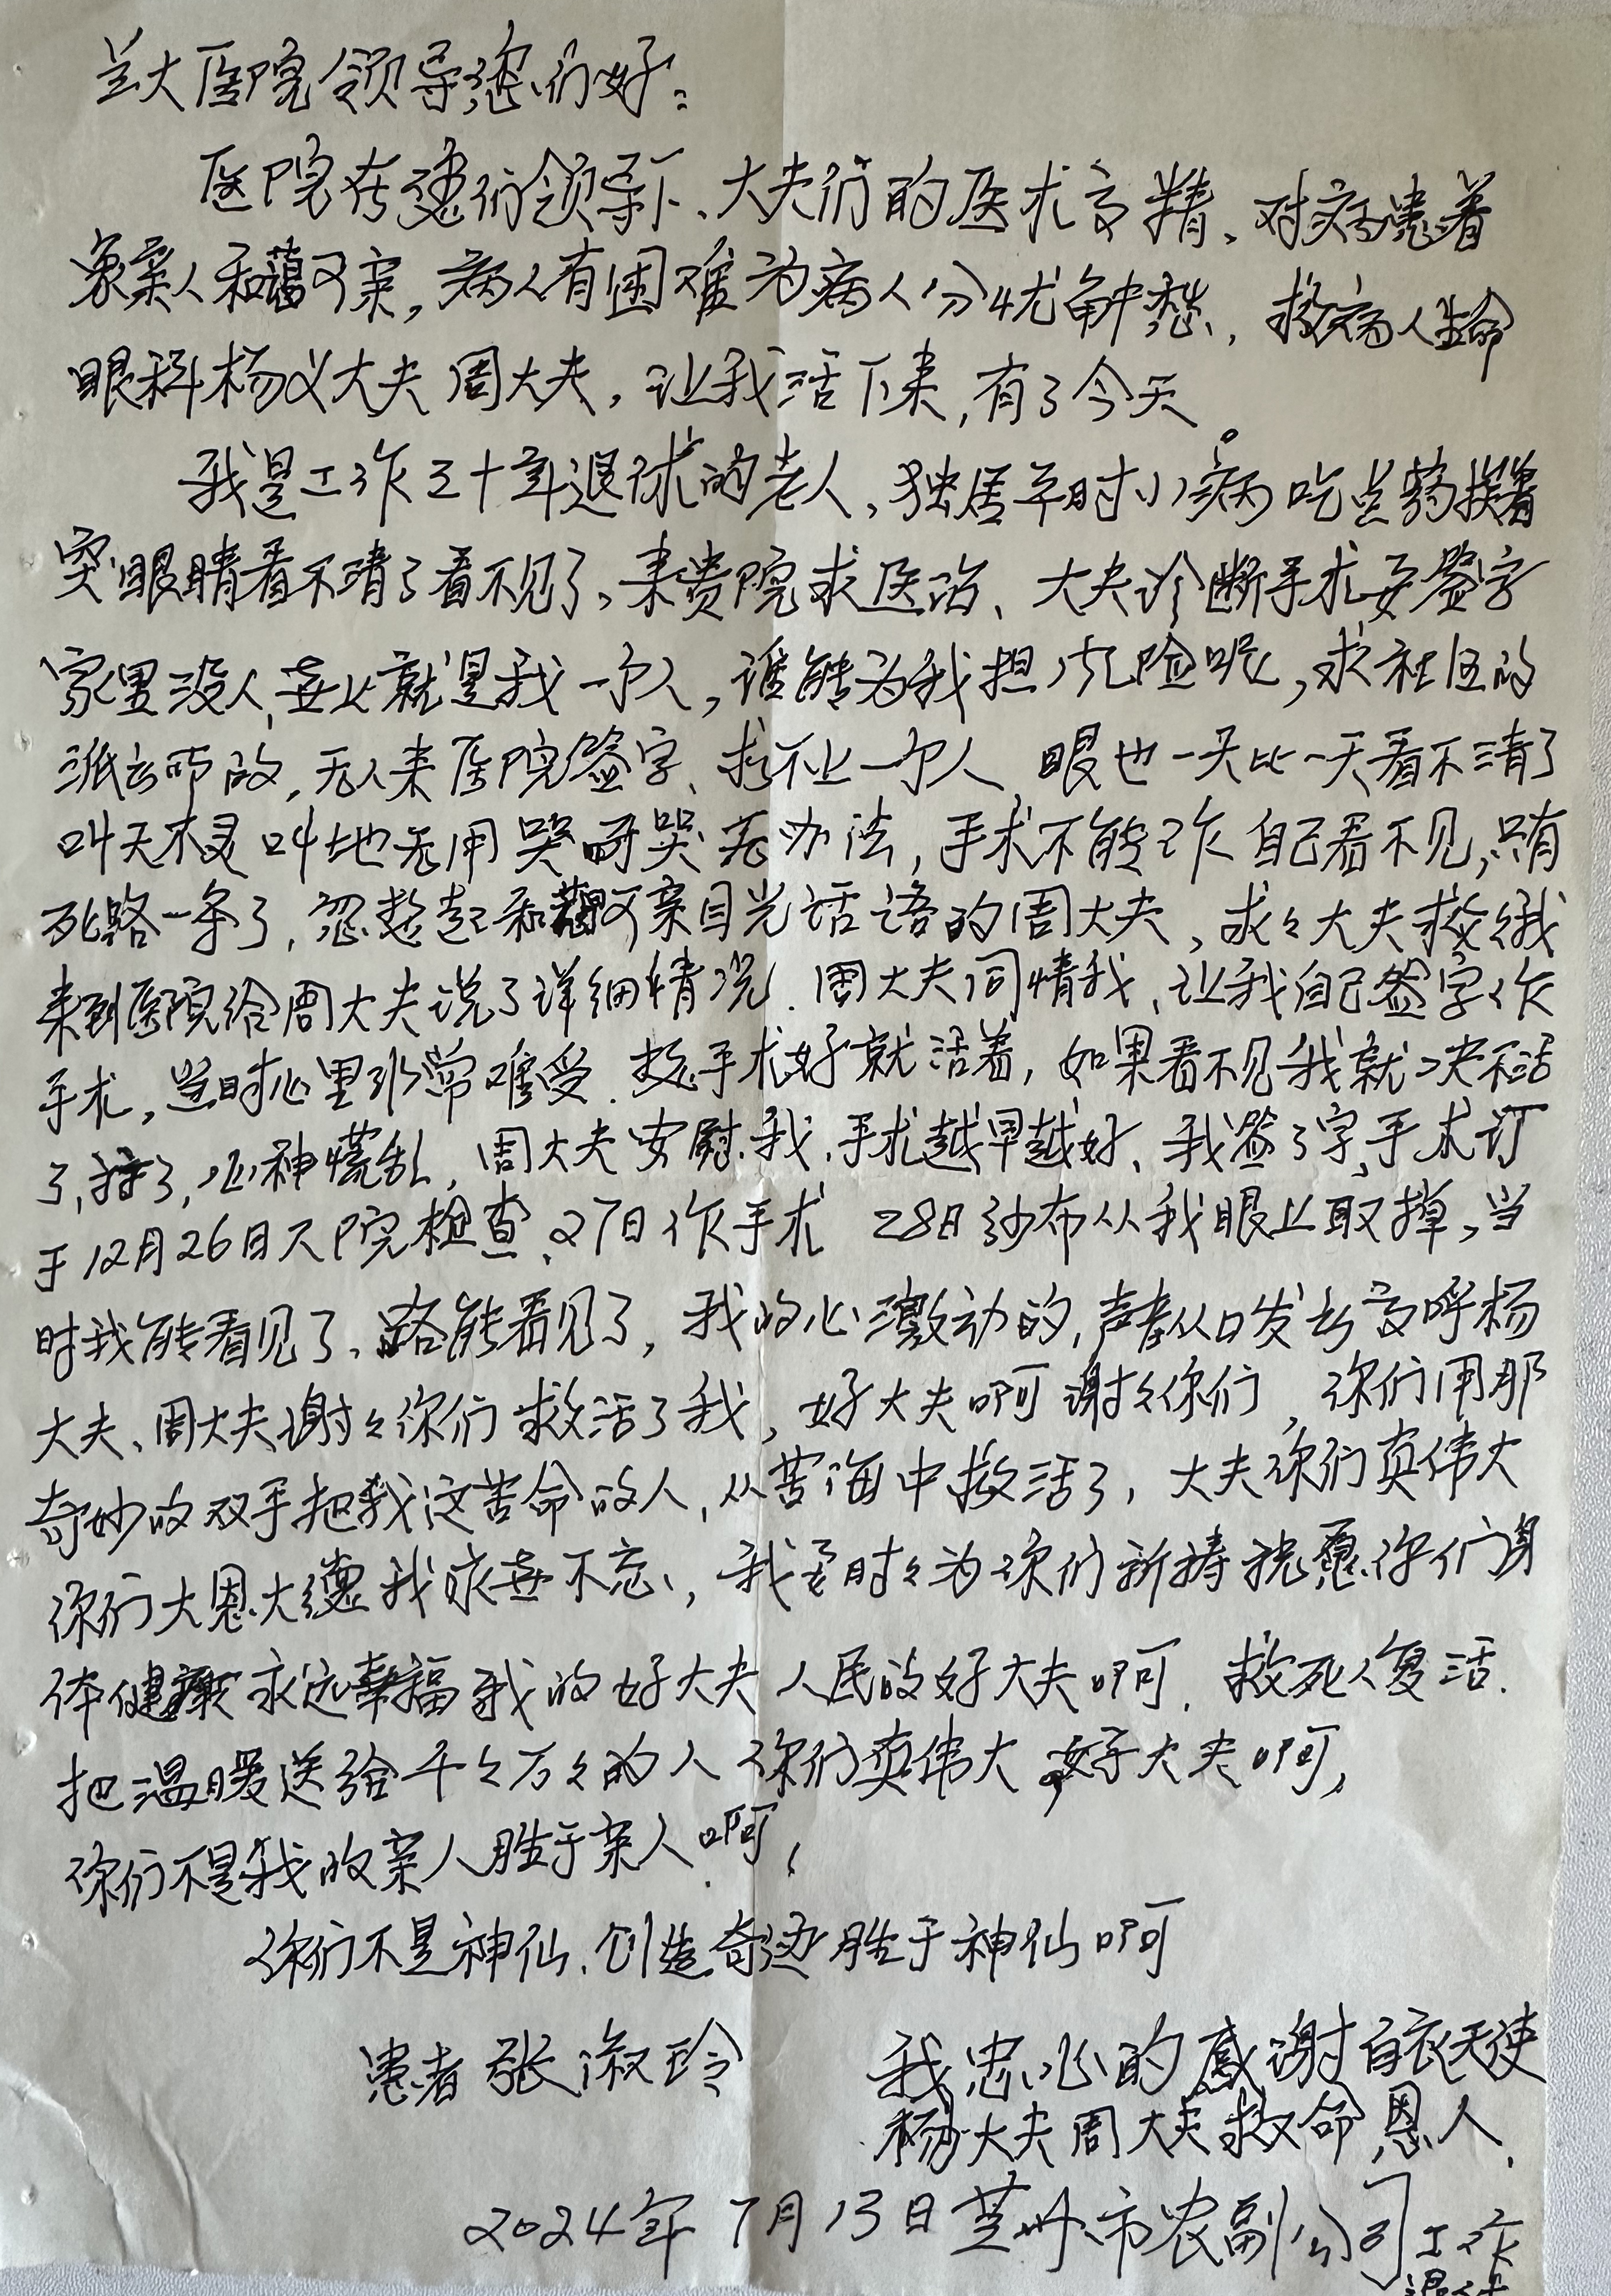 兰大医院领导您们好：
医院在您们领导下、大夫们的医术高精、对病患者
象亲人和蔼可亲，病人有困难为病人分忧解愁，救病人生命
眼科杨义大夫 周大夫，让我活下来，有了今天。
我是工作三十年退休的老人，独居平时小病吃些药挨着
突眼睛看不晴了看不见了，来贵院求医治、大夫诊断手术要签字
家里没人，世上就是我一个人，谁能为我担风险呢，求社区的
派去所的，无人来医院签字、找不上一个人，眼也一天比一天看不清了
叫天不灵叫地无用 哭呀哭无办法，手术不能作 自己看不见，只有
死路一条了，忽想起和蔼可亲目光话语的周大夫，求々大夫救々我
来到医院给周大夫说了详细情况．周大夫同情我、让我自己签字作
手术，当时心里非常难受．手术好就活着，如果看不见我就决不活
了，，心神慌乱，周大夫安慰我，手术越早越好、我签了字，手术订
于12月26日入院检查、27日作手术 28日纱布从我眼上取掉，当
时我能看见了、路能看见了，我的心激动的，声音从口发出高呼杨
大夫、周大夫谢々你们救活了我，好大夫啊谢々你们，你们用那
奇妙的双手把我这苦命的人，从苦海中救活了，大夫你们真伟大
你们大恩大德我永世不忘，我要时々为你们祈祷祝愿你们身
体健康永远幸福我的好大夫 人民的好大夫啊．救死人复活．
把温暖送给千々万々的人 你们真伟大，好大夫啊，
你们不是我的亲人胜于亲人啊，
你们不是神仙、创造奇迹胜于神仙啊
患者 张淑玲
我忠心的感谢白衣天使
杨大夫周大夫救命恩人．
2024年7月13日兰州市农副公司工作
退休